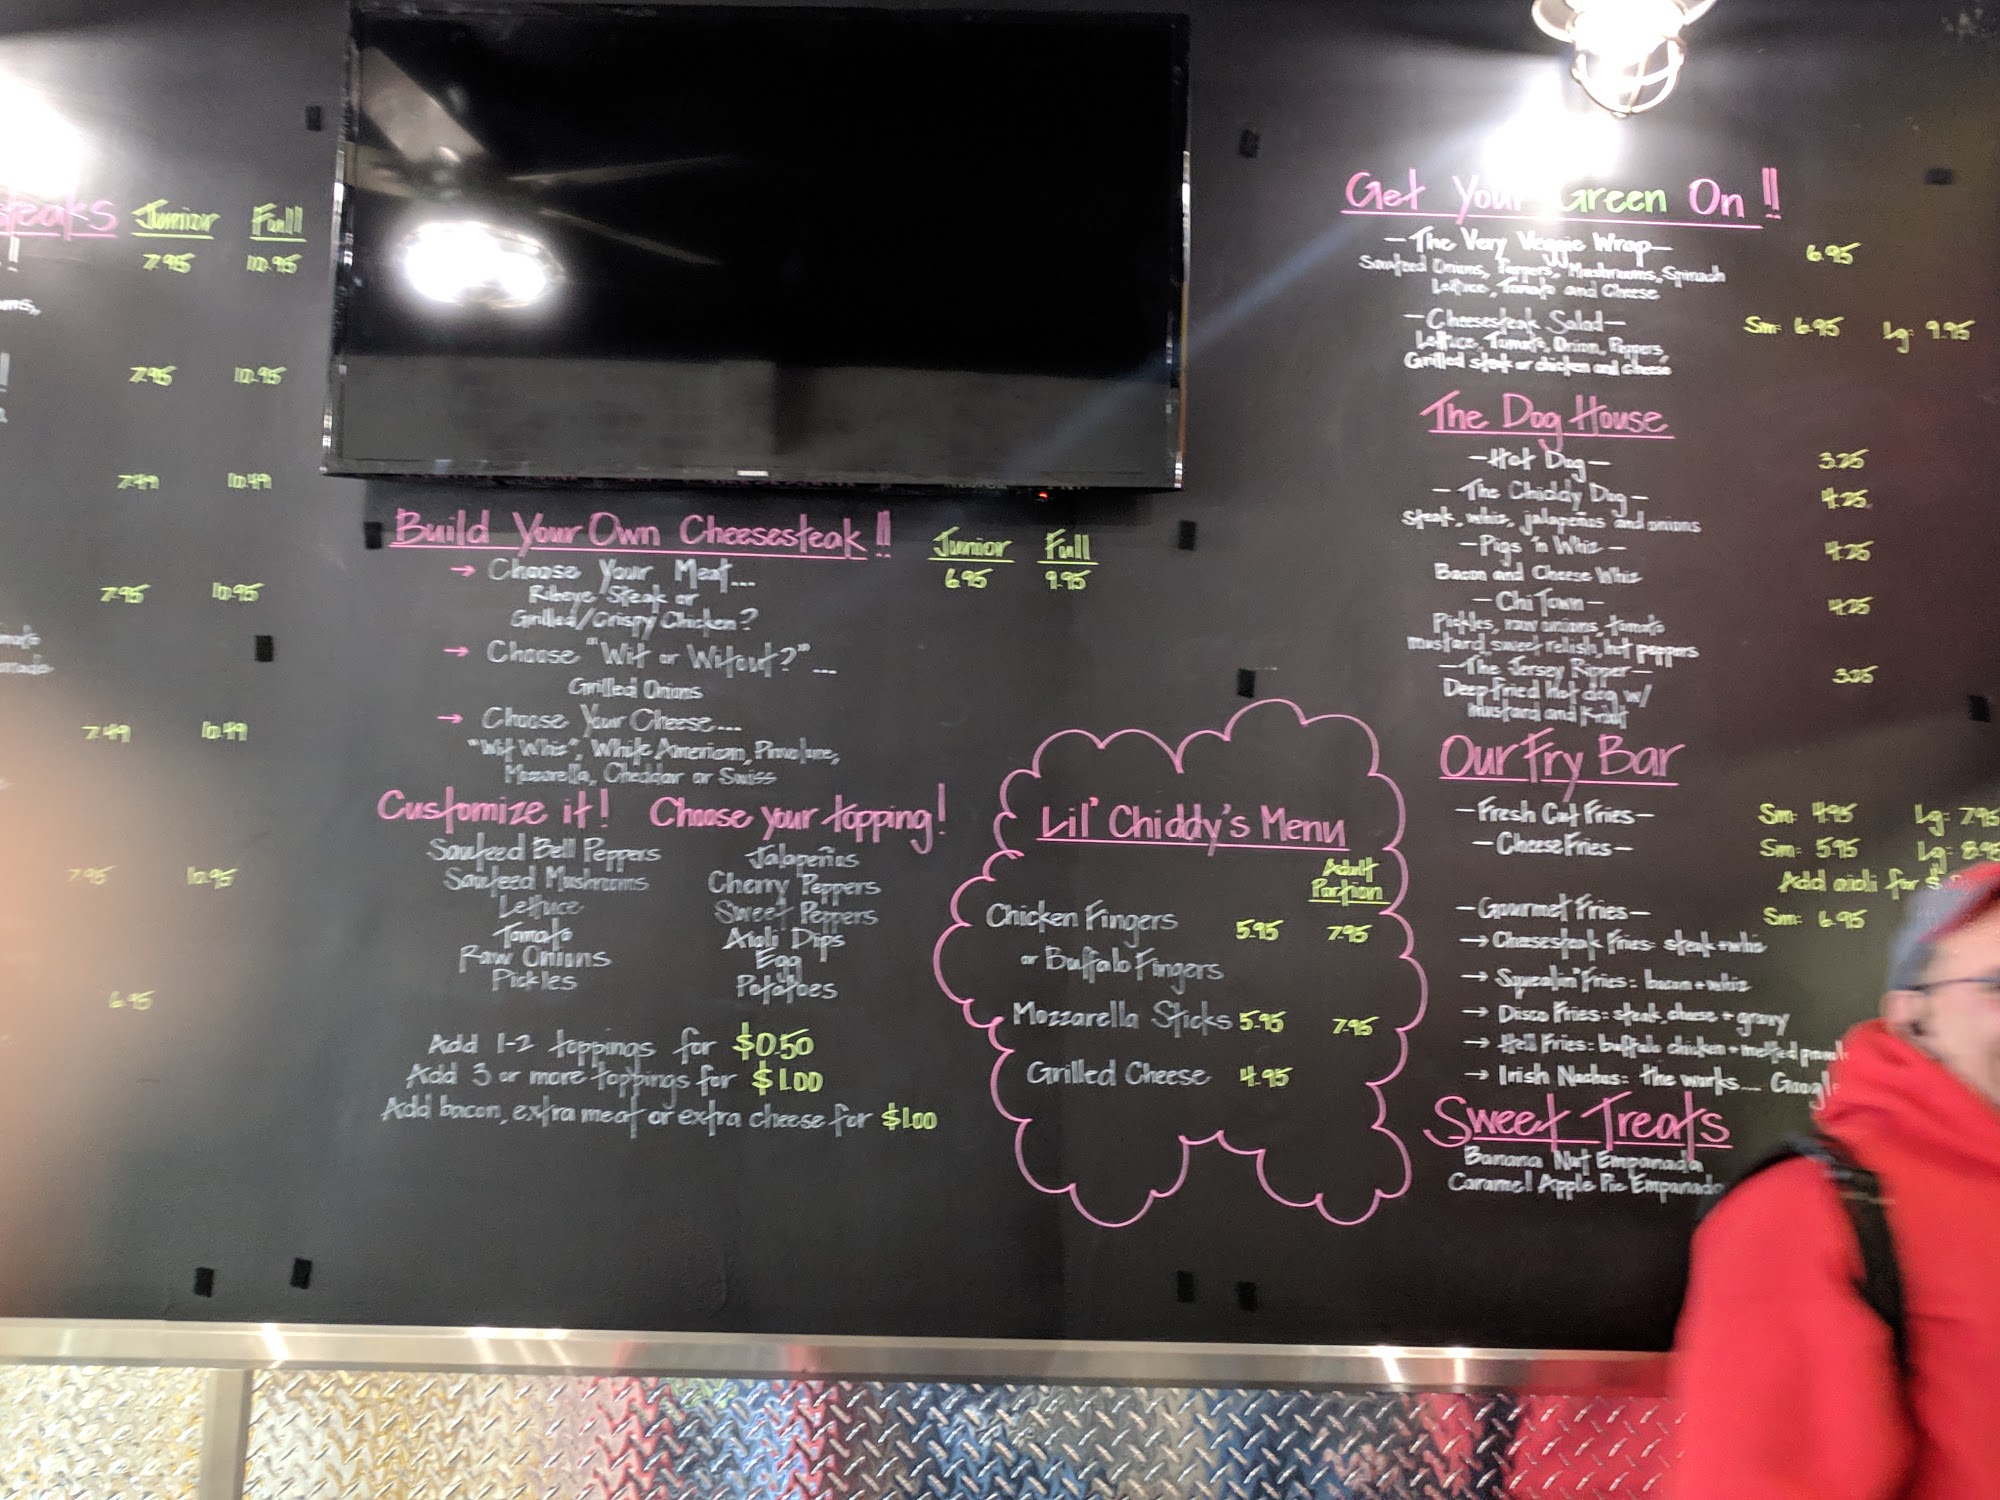 Junior Full
7.95 10.95
7.95 10.95
7.49 10.49
7.95 10.95
7.49 10.49
7.95 10.95
6.95
Build Your Own Cheesesteak!!
Junior Full
6.95 9.95
→ Choose Your Meat...
Ribeye Steak or
Grilled/Crispy Chicken?
→ Choose "Wit or Witout?"...
Grilled Onions
→ Choose Your Cheese....
"Wit Whiz", White American, Provolone,
Mozzarella, Cheddar or Swiss
Customize it! Choose your topping!
Sauteed Bell Peppers
Sauteed Mushrooms
Lettuce
Tomato
Raw Onions
Pickles
Jalapeños
Cherry Peppers
Sweet Peppers
Aioli Dips
Egg
Potatoes
Add 1-2 toppings for $0.50
Add 3 or more toppings for $1.00
Add bacon, extra meat or extra cheese for $1.00
Lil' Chiddy's Menu
Adult
Portion
Chicken Fingers 5.95 7.95
or Buffalo Fingers
Mozzarella Sticks 5.95 7.95
Grilled Cheese 4.95
Get Your Green On!!
-The Very Veggie Wrap- 6.95
Sauteed Onions, Peppers, Mushrooms, Spinach
Lettuce, Tomato and Cheese
-Cheesesteak Salad- Sm: 6.95 Lg: 9.95
Lettuce, Tomato, Onion, Peppers,
Grilled steak or chicken and cheese
The Dog House
-Hot Dog- 3.25
-The Chiddy Dog- 4.25
Steak, whiz, jalapeños and onions
-Pigs 'n Whiz- 4.25
Bacon and Cheese Whiz
-Chi Town- 4.25
Pickles, raw onions, tomato
mustard, sweet relish, hot peppers
-The Jersey Ripper- 3.25
Deep fried hot dog w/
Mustard and Kraut
Our Fry Bar
-Fresh Cut Fries- Sm: 4.95 Lg: 7.95
-Cheese Fries- Sm: 5.95 Lg: 8.95
Add aioli for $
-Gourmet Fries- Sm: 6.95
→ Cheesesteak Fries: steak + whiz
→ Squealin' Fries: bacon + whiz
→ Disco Fries: steak, cheese + gravy
→ Hell Fries: buffalo chicken + melted
→ Irish Nachos: the works....
Sweet Treats
Banana Nut Empanada
Caramel Apple Pie Empanada